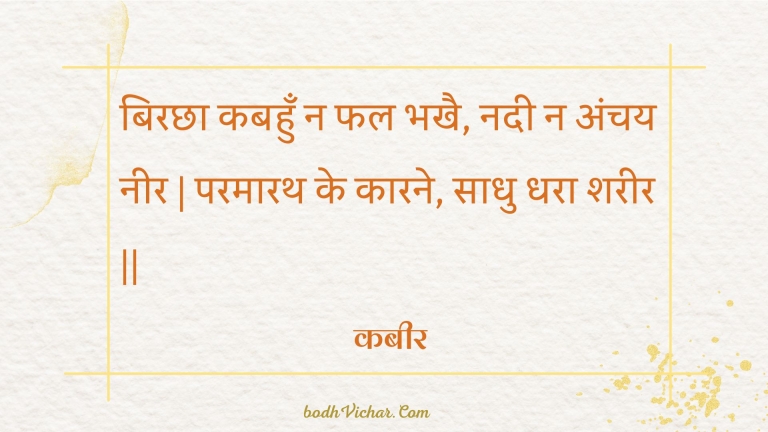 बिरछा कबहुँ न फल भखै, नदी न अंचय
नीर | परमारथ के कारने, साधु धरा शरीर
||
कबीर
bodhVichar.Com